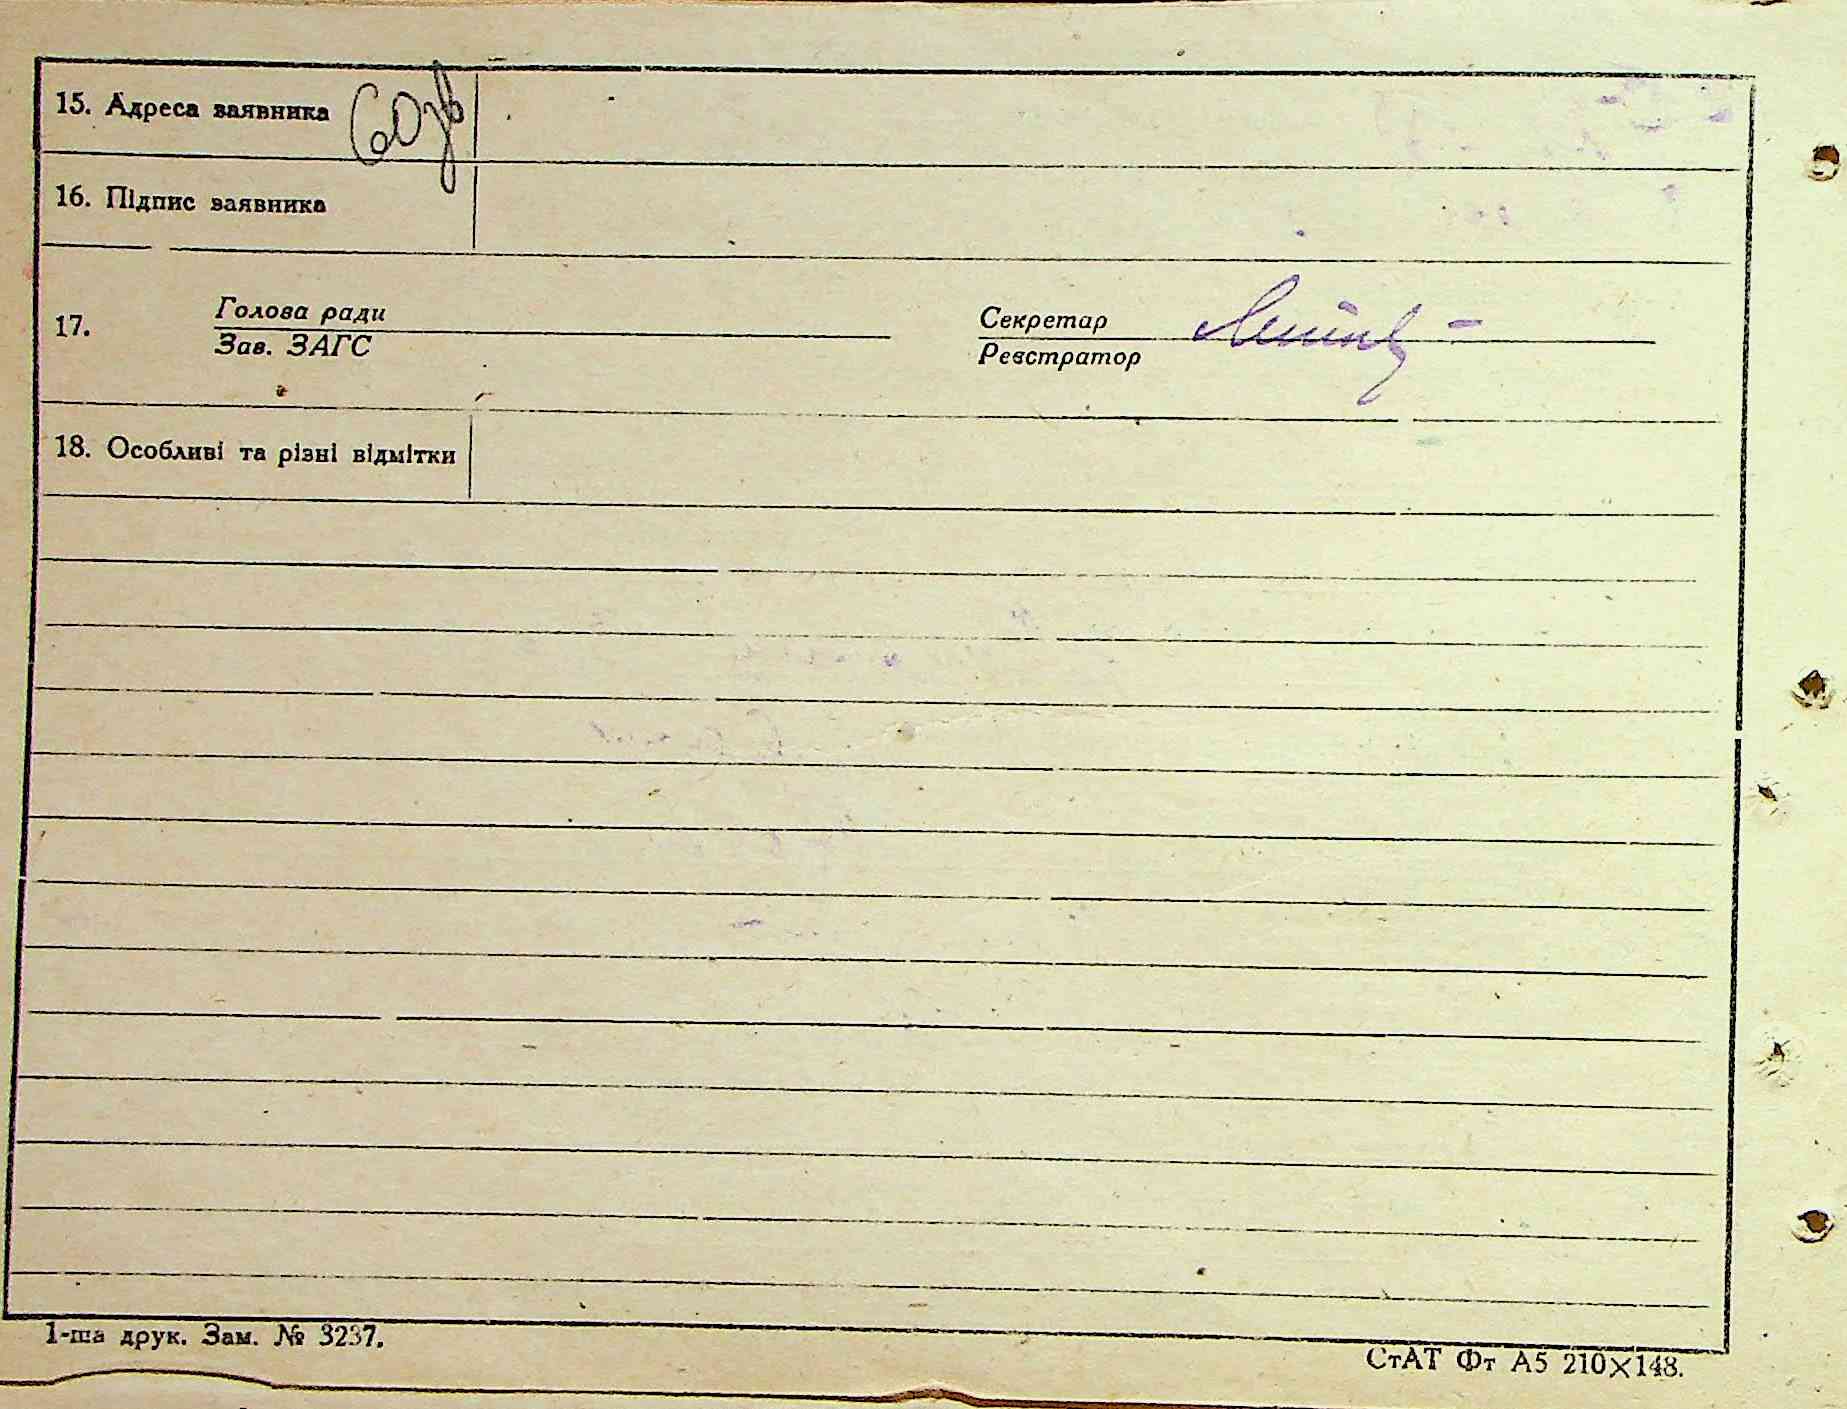 15. Адреса заявника 60зв
16. Підпис заявника
17. Голова ради Секретар
Зав. ЗАГС Реєстратор
18. Особливі та різні відмітки
1-ша друк. Зам. № 3237.
СтАТ Фт А5 210×148.